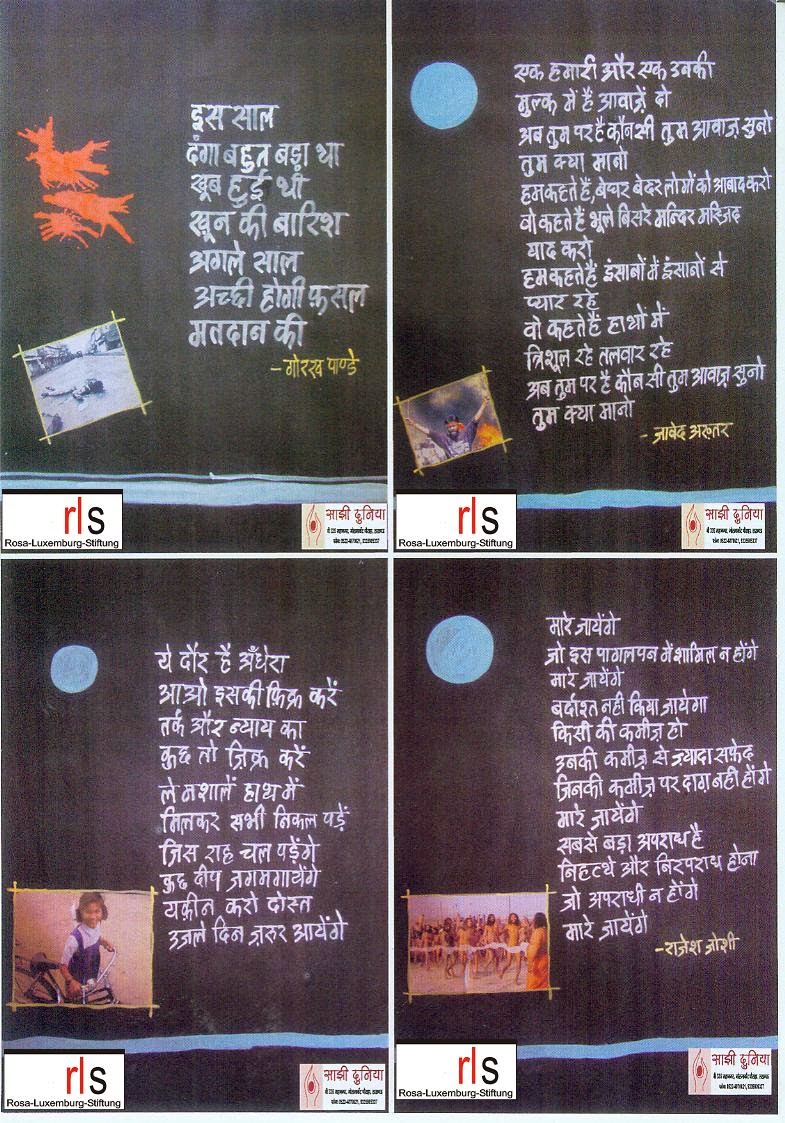 इस साल
दंगा बहुत बड़ा था
खूब हुई थी
खून की बारिश
अगले साल
अच्छी होगी फ़सल
मतदान की
-गोरख पाण्डे
rls
Rosa-Luxemburg-Stiftung
साझी दुनिया
एक हमारी और एक उनकी
मुल्क में हैं आवाज़ें दो
अब तुम पर है कौन सी तुम आवाज़ सुनो
तुम क्या मानो
हम कहते हैं, बेघर बेदर लोगों को आबाद करो
वो कहते हैं भूले बिसरे मन्दिर मस्जिद
याद करो
हम कहते हैं इंसानों में इंसानों से
प्यार रहे
वो कहते हैं हाथों में
त्रिशूल रहे तलवार रहे
अब तुम पर है कौन सी तुम आवाज़ सुनो
तुम क्या मानो
-जावेद अख़्तर
rls
Rosa-Luxemburg-Stiftung
साझी दुनिया
ये दौर है अँधेरा
आओ इसकी फ़िक्र करें
तर्क और न्याय का
कुछ तो ज़िक्र करें
ले मशालें हाथ में
मिलकर सभी निकल पड़ें
जिस राह चल पड़ेंगे
कुछ दीप जगमगायेंगे
यक़ीन करो दोस्त
उजले दिन ज़रुर आयेंगे
rls
Rosa-Luxemburg-Stiftung
साझी दुनिया
मारे जायेंगे
जो इस पागलपन में शामिल न होंगे
मारे जायेंगे
बर्दाश्त नहीं किया जायेगा
किसी की कमीज़ हो
उनकी कमीज़ से ज्यादा सफ़ेद
जिनकी कमीज़ पर दाग़ नहीं होंगे
मारे जायेंगे
सबसे बड़ा अपराध है
निहत्थे और निरपराध होना
जो अपराधी न होंगे
मारे जायेंगे
-राजेश जोशी
rls
Rosa-Luxemburg-Stiftung
साझी दुनिया